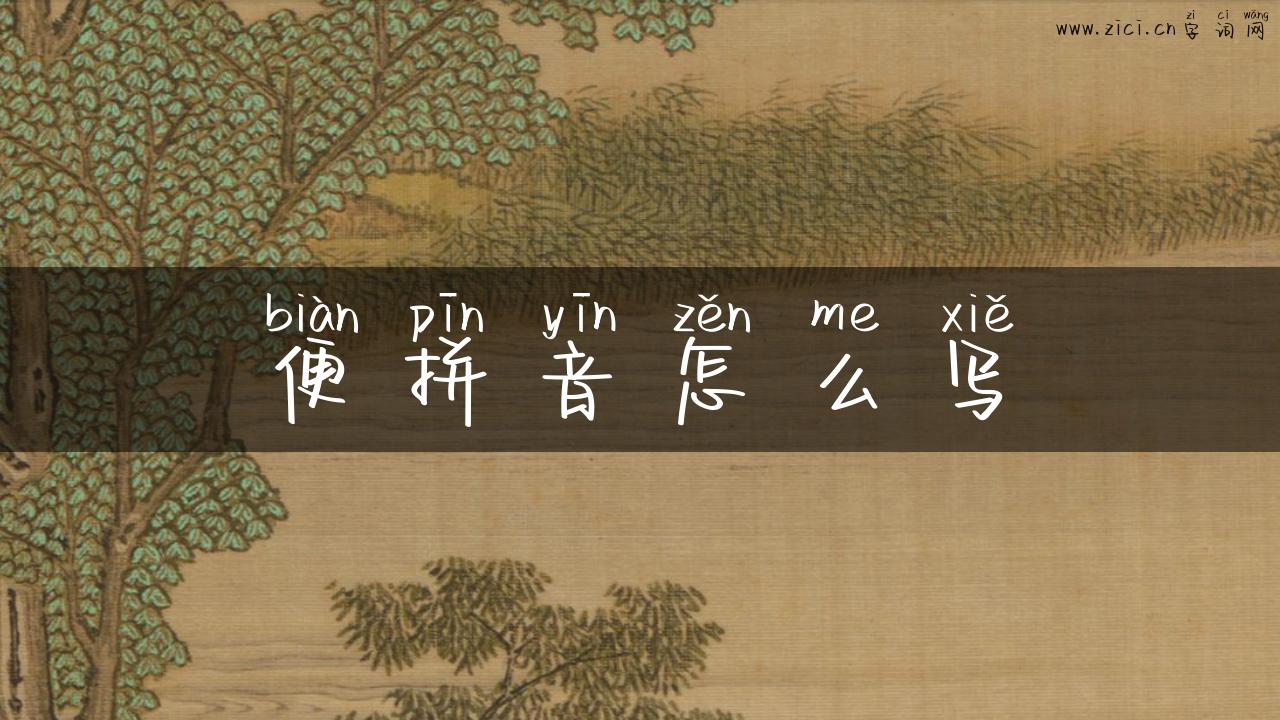 zì cí wǎng
www.zici.cn字词网
biàn pīn yīn zěn me xiě
便拼音怎么写